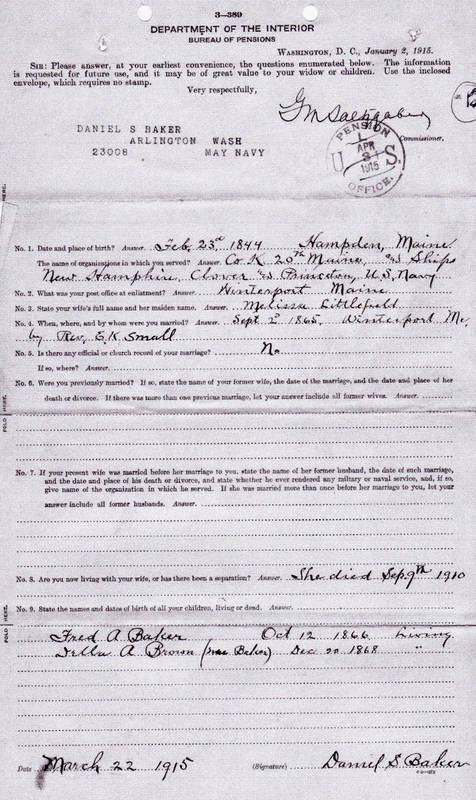 3—389
DEPARTMENT OF THE INTERIOR
BUREAU OF PENSIONS
WASHINGTON, D. C., January 2, 1915.
SIR: Please answer, at your earliest convenience, the questions enumerated below. The information
is requested for future use, and it may be of great value to your widow or children. Use the inclosed
envelope, which requires no stamp.
Very respectfully,
G M Saltzgaber
Commissioner.
DANIEL S BAKER
ARLINGTON WASH
23008 MAY NAVY
PENSION
U.S.
1
APR
3
1915
OFFICE.
No. 1. Date and place of birth? Answer. Feb. 23rd 1844 Hampden, Maine.
The name of organizations in which you served? Answer. Co K 20th Maine, and Ships
New Hamphire, Clover and Princeton, U.S. Navy
No. 2. What was your post office at enlistment? Answer. Winterport Maine
No. 3. State your wife's full name and her maiden name. Answer. Melissa Littlefield
No. 4. When, where, and by whom were you married? Answer. Sept 2d 1865. Winterport Me,
by Rev. E. K. Small
No. 5. Is there any official or church record of your marriage? No
If so, where? Answer.
No. 6. Were you previously married? If so, state the name of your former wife, the date of the marriage, and the date and place of her
death or divorce. If there was more than one previous marriage, let your answer include all former wives. Answer.
No. 7. If your present wife was married before her marriage to you, state the name of her former husband, the date of such marriage,
and the date and place of his death or divorce, and state whether he ever rendered any military or naval service, and, if so,
give name of the organization in which he served. If she was married more than once before her marriage to you, let your
answer include all former husbands. Answer.
No. 8. Are you now living with your wife, or has there been a separation? Answer. She died Sep. 9th 1910
No. 9. State the names and dates of birth of all your children, living or dead. Answer.
Fred A Baker Oct 12 1866 Living
Della A Brown (nee Baker) Dec 20 1868 "
Date March 22 1915 (Signature) Daniel S. Baker
FOLD HERE.
FOLD HERE.